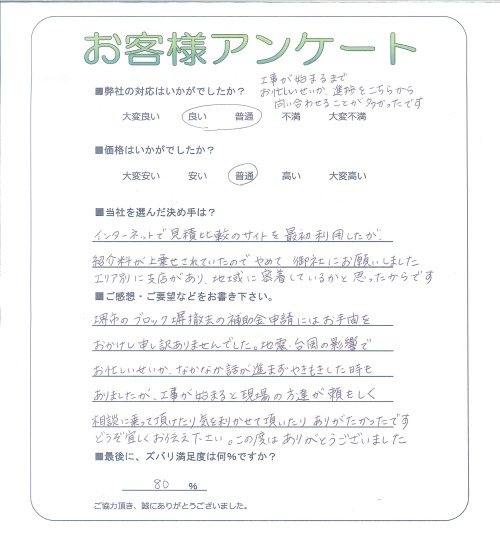 お客様アンケート
■弊社の対応はいかがでしたか？
工事が始まるまで
お忙しいせいか、進捗をこちらから
問い合わせることが多かったです
大変良い 良い 普通 不満 大変不満
■価格はいかがでしたか？
大変安い 安い 普通 高い 大変高い
■当社を選んだ決め手は？
インターネットで見積比較のサイトを最初利用したが、
紹介料が上乗せされていたのでやめて 御社にお願いしました
エリア別に支店があり、地域に密着しているかと思ったからです
■ご感想・ご要望などをお書き下さい。
堺市のブロック塀撤去の補助金申請にはお手間を
おかけし申し訳ありませんでした。地震、台風の影響で
お忙しいせいか、なかなか話が進まずやきもきした時も
ありましたが、工事が始まると現場の方達が頼もしく
相談に乗って頂けたり気を利かせて頂いたり ありがたかったです
どうぞ宜しくお伝え下さい。この度はありがとうございました
■最後に、ズバリ満足度は何％ですか？
80 ％
ご協力頂き、誠にありがとうございました。